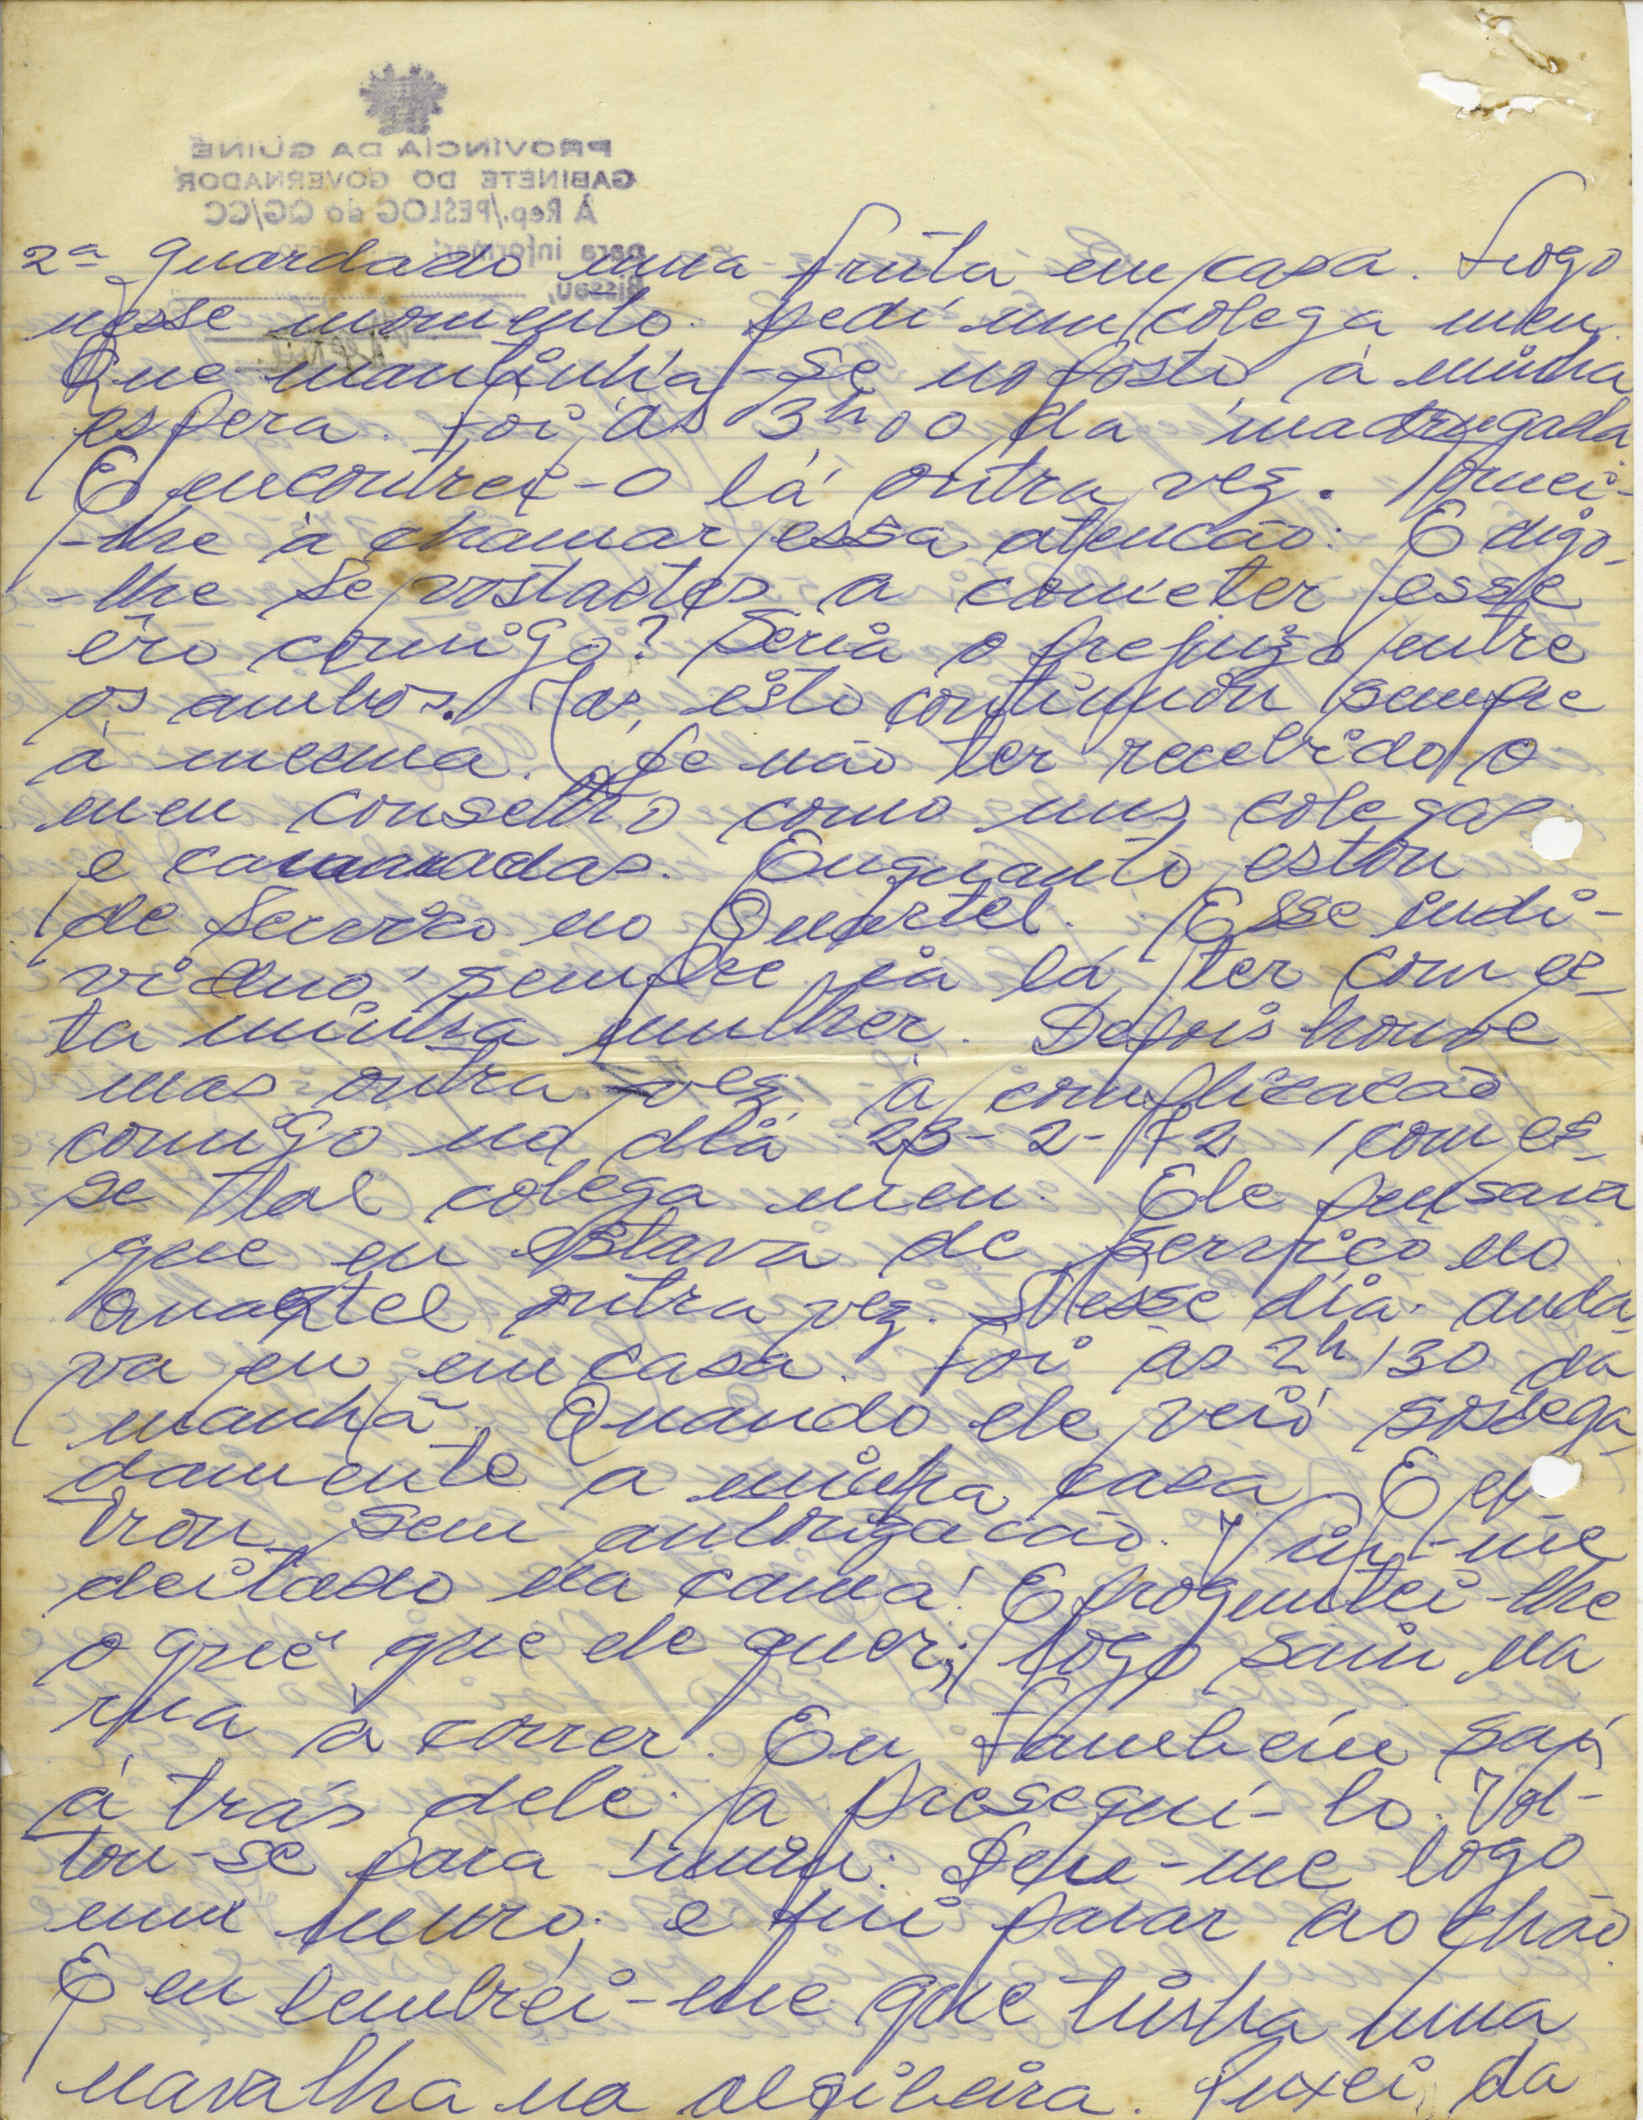 PROVÍNCIA DA GUINÉ
GABINETE DO GOVERNADOR
À Rep./PESLOG do QG/CC
para informar
Bissau,
2ª guardado uma fruta em casa. Logo
nesse momento. pedi um colega meu.
Que mantinha-se no posto à minha
espera. Foi ás 3h00 da madrugada
E encontrei-o lá outra vez.
-lhe à chamar essa atencão: E digo-
-lhe se vostastes a cometer esse
êro comigo? Seria o prejuizo entre
os ambos. Mas, isto continuou sempre
à mesma. De não ter recebido o
meu conselho como uns colegas
e camaradas. Enquanto estou
de Servico no Quartel. Esse indi-
viduo sempre ia lá ter com es-
ta minha mulher. Depois houve
mas outra vez à complicacão
comigo no dia 23-2-72 com es-
se tal colega meu. Ele pensava
que eu estava de serviço no
quartel outra vez. Nesse dia. anda-
va eu em casa. Foi às 2h/30 da
manhã. Quando ele veio sossega-
damente a minha casa. E en-
trou sem autorizacão. Viu-me
deitado na cama! E proguntei-lhe
o quê que ele quer; logo saiu na
rua à correr. Eu também saí
à trás dele. a presegui-lo. Vol-
tou-se para mim. Deu-me logo
um murro; e fui parar ao chão.
E eu lembrei-me que tinha uma
navalha na algibeira. Puxei da